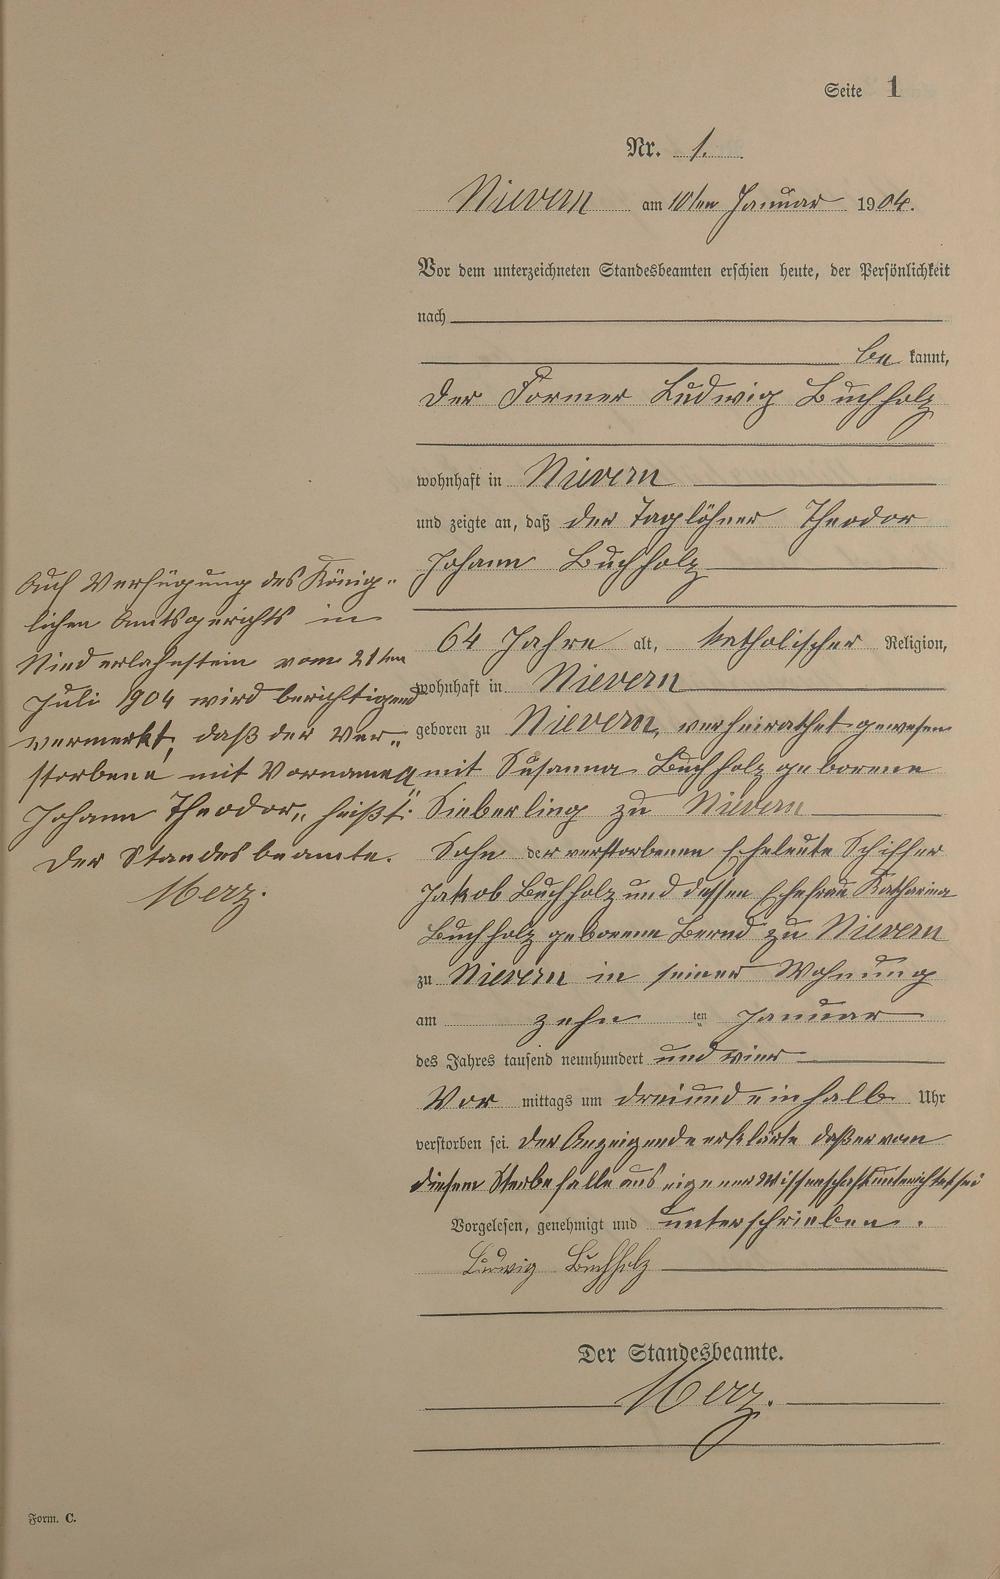 Seite 1
Nr. 1.
Nievern am 10ten Januar 1904.
Vor dem unterzeichneten Standesbeamten erschien heute, der Persönlichkeit
nach
be kannt,
der Former Ludwig Buchholz
wohnhaft in Nievern
und zeigte an, daß der Taglöhner Theodor
Johann Buchholz
64 Jahre alt, katholischer Religion,
wohnhaft in Nievern
geboren zu Nievern, verheirathet gewesen
mit Susanna Buchholz geborene
Sieberling zu Nievern
Sohn der verstorbenen Eheleute Schiffer
Jakob Buchholz und dessen Ehefrau Katharina
Buchholz geborene Bernd zu Nievern
zu Nievern in seiner Wohnung
am zehn ten Januar
des Jahres tausend neunhundert und vier
Vor mittags um dreiundeinhalb Uhr
verstorben sei. Der Anzeigende erklärte daß er vom
diesem Sterbefalle aus eigener Wissenschaft unterichtet sei
Vorgelesen, genehmigt und unterschrieben.
Ludwig Buchholz
Der Standesbeamte.
Merz.
Auf Verfügung des König-
lichen Amtsgerichts in
Niederlahnstein vom 21ten
Juli 1904 wird berichtigend
vermerkt, daß der Ver-
storbene mit Vornamen
Johann Theodor" heißt.
Der Standesbeamte.
Merz.
Form. C.